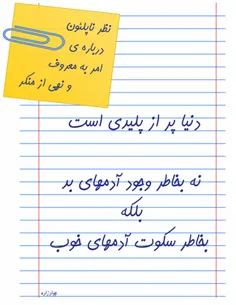 نظر ناپلئون
درباره ی
امر به معروف
و نهی از منکر
دنیا پر از پلیدی است
نه بخاطر وجود آدمهای بد
بلکه
بخاطر سکوت آدمهای خوب